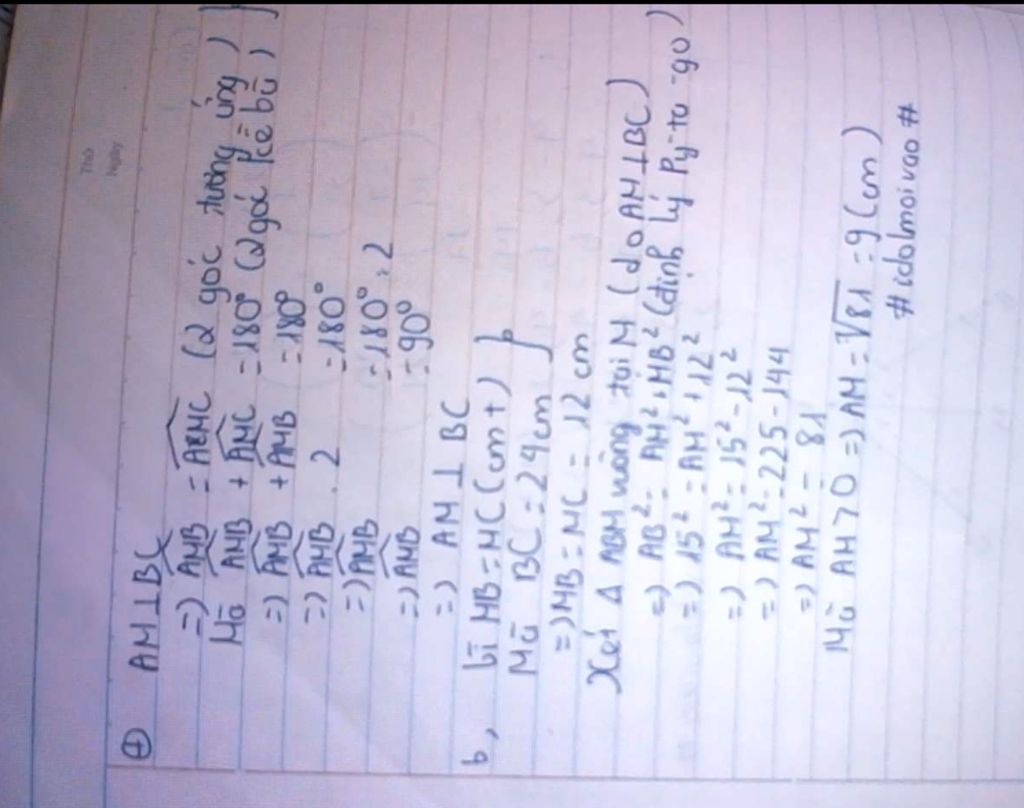 Thứ
Ngày
⊕ AM⊥BC
=) AMB = AMC (2 góc tương ứng)
Mà AMB + AMC = 180° (2 góc kề bù)
=) AMB + AMB = 180°
=) AMB . 2 = 180°
=) AMB = 180° : 2
=) AMB = 90°
=) AM ⊥ BC
b, Vì MB = MC (cmt)
Mà BC = 24cm
=) MB = MC = 12 cm
Xét Δ ABM vuông tại M (do AM⊥BC)
=) AB² = AM² + MB² (định lý Py-ta-go)
=) 15² = AM² + 12²
=) AM² = 15² - 12²
=) AM² = 225 - 144
=) AM² = 81
Mà AM > 0 =) AM = √81 = 9 (cm)
#idolmoivao#